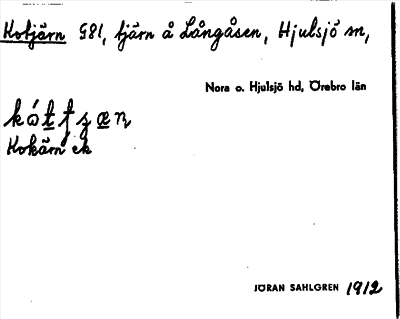 Kotjärn G81, tjärn å Långåsen, Hjulsjö sn,
Nora o. Hjulsjö hd, Örebro län
Kokärn ek
JÖRAN SAHLGREN 1912